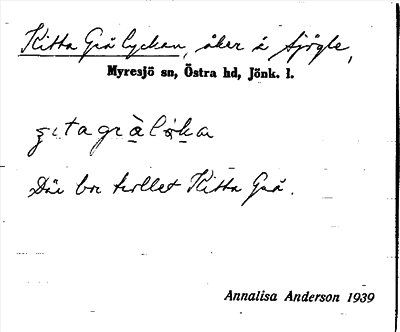 Kitta Grå lyckan, åker å Sjögle,
Myresjö sn, Östra hd, Jönk. l.
Där bor trollet Kitta Grå.
Annalisa Anderson 1939